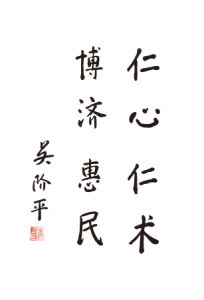 仁心仁术
博济惠民
吴阶平